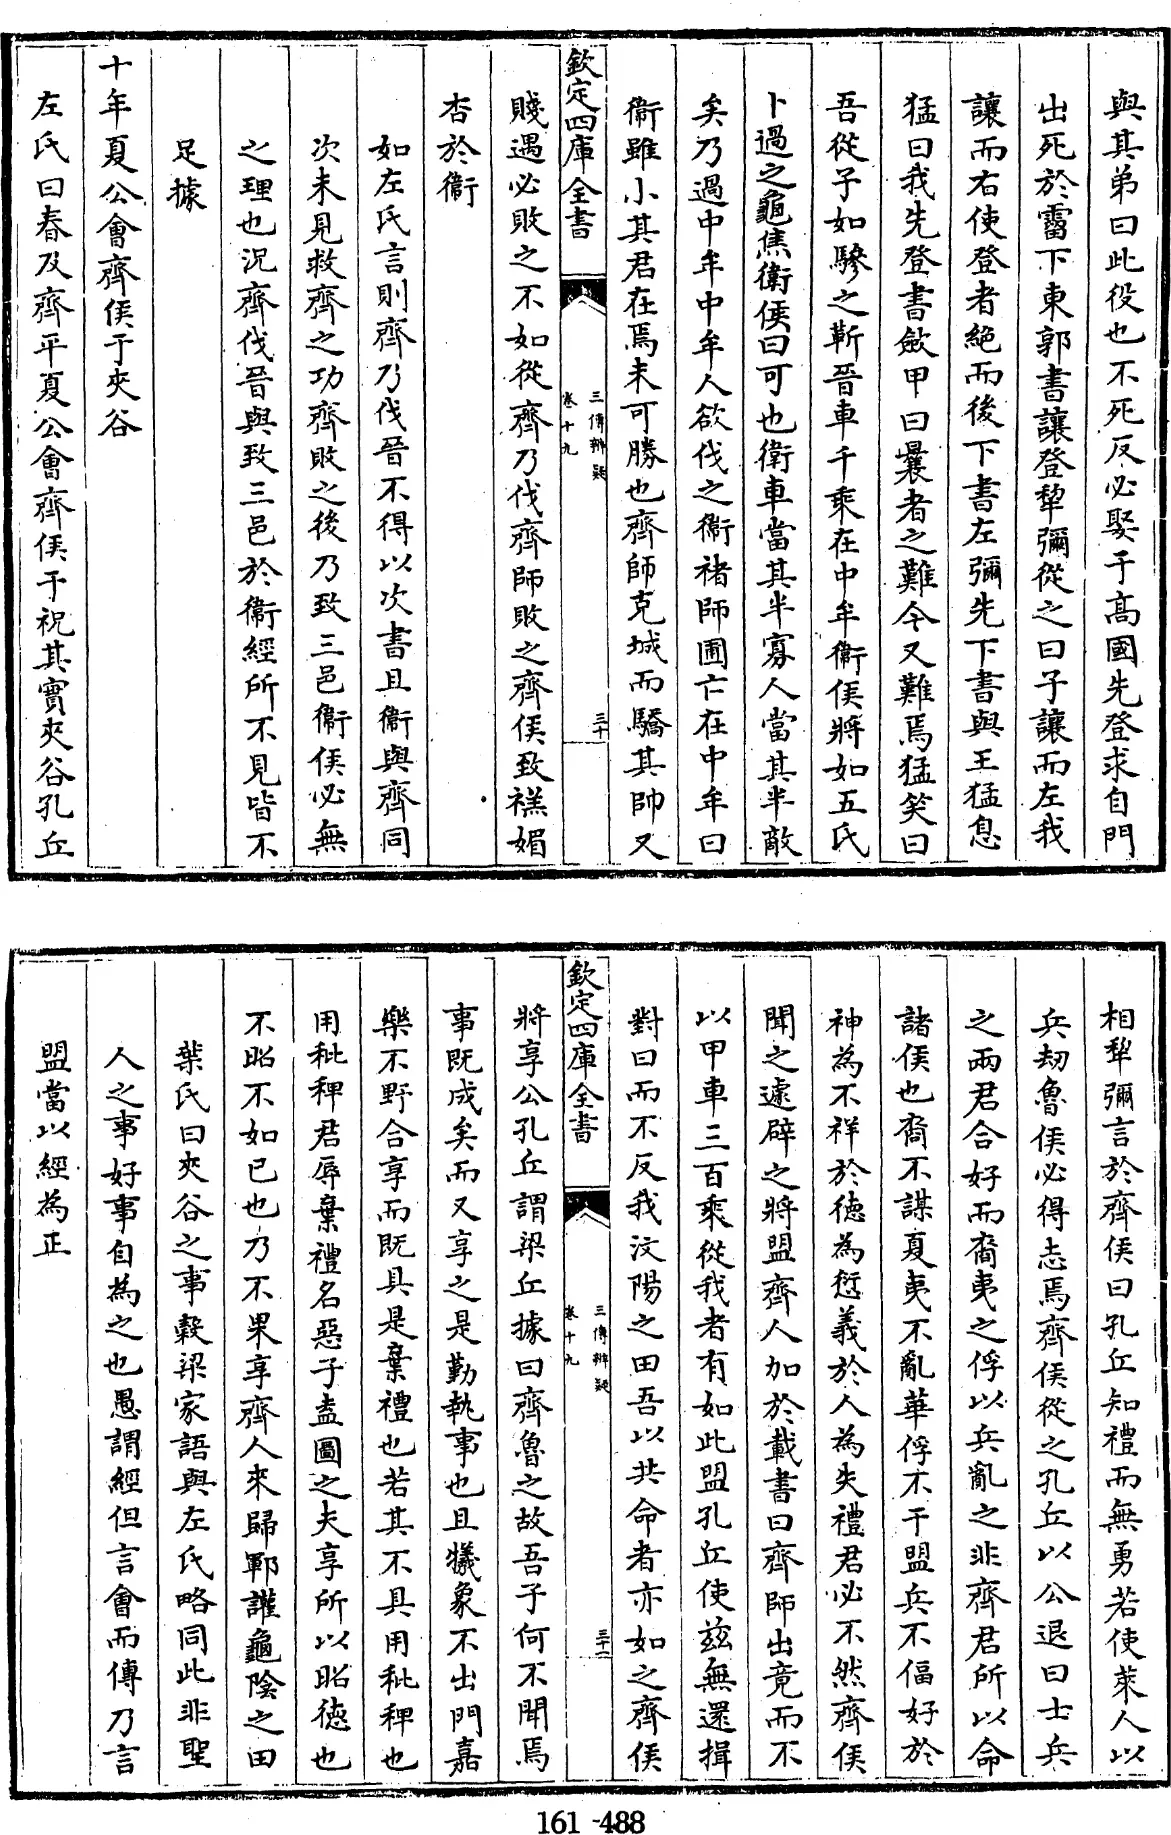 與其弟曰此役也不死反必娶于高國先登求自門
出死於霤下東郭書讓登犂彌從之曰子讓而左我
讓而右使登者絶而後下書左彌先下書與王猛息
猛曰我先登書斂甲曰曩者之難今又難焉猛笑曰
吾從子如驂之靳晉車千乘在中牟衛侯將如五氏
卜過之龜焦衛侯曰可也衛車當其半寡人當其半敵
矣乃過中牟中牟人欲伐之衛褚師圃亡在中牟曰
衛雖小其君在焉未可勝也齊師克城而驕其帥又
欽定四庫全書
三傳辨疑
卷十九
三十
賤遇必敗之不如從齊乃伐齊師敗之齊侯致禚媚
杏於衛
如左氏言則齊乃伐晉不得以次書且衛與齊同
次未見救齊之功齊敗之後乃致三邑衛侯必無
之理也況齊伐晉與致三邑於衛經所不見皆不
足據
十年夏公會齊侯于夾谷
左氏曰春及齊平夏公會齊侯于祝其實夾谷孔丘
相犂彌言於齊侯曰孔丘知禮而無勇若使萊人以
兵劫魯侯必得志焉齊侯從之孔丘以公退曰士兵
之兩君合好而裔夷之俘以兵亂之非齊君所以命
諸侯也裔不謀夏夷不亂華俘不干盟兵不偪好於
神為不祥於德為愆義於人為失禮君必不然齊侯
聞之遽辟之將盟齊人加於載書曰齊師出竟而不
以甲車三百乘從我者有如此盟孔丘使兹無還揖
對曰而不反我汶陽之田吾以共命者亦如之齊侯
欽定四庫全書
三傳辨疑
卷十九
三十一
將享公孔丘謂梁丘據曰齊魯之故吾子何不聞焉
事既成矣而又享之是勤執事也且犧象不出門嘉
樂不野合享而既具是棄禮也若其不具用秕稗也
用秕稗君辱棄禮名惡子盍圖之夫享所以昭德也
不昭不如已也乃不果享齊人來歸鄆讙龜陰之田
葉氏曰夾谷之事穀梁家語與左氏略同此非聖
人之事好事自為之也愚謂經但言會而傳乃言
盟當以經為正
161-488